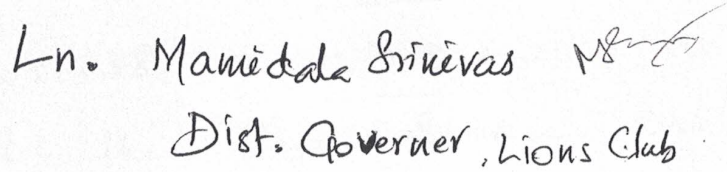 Ln. Mamidala Srinivas
Dist. Governer, Lions Club